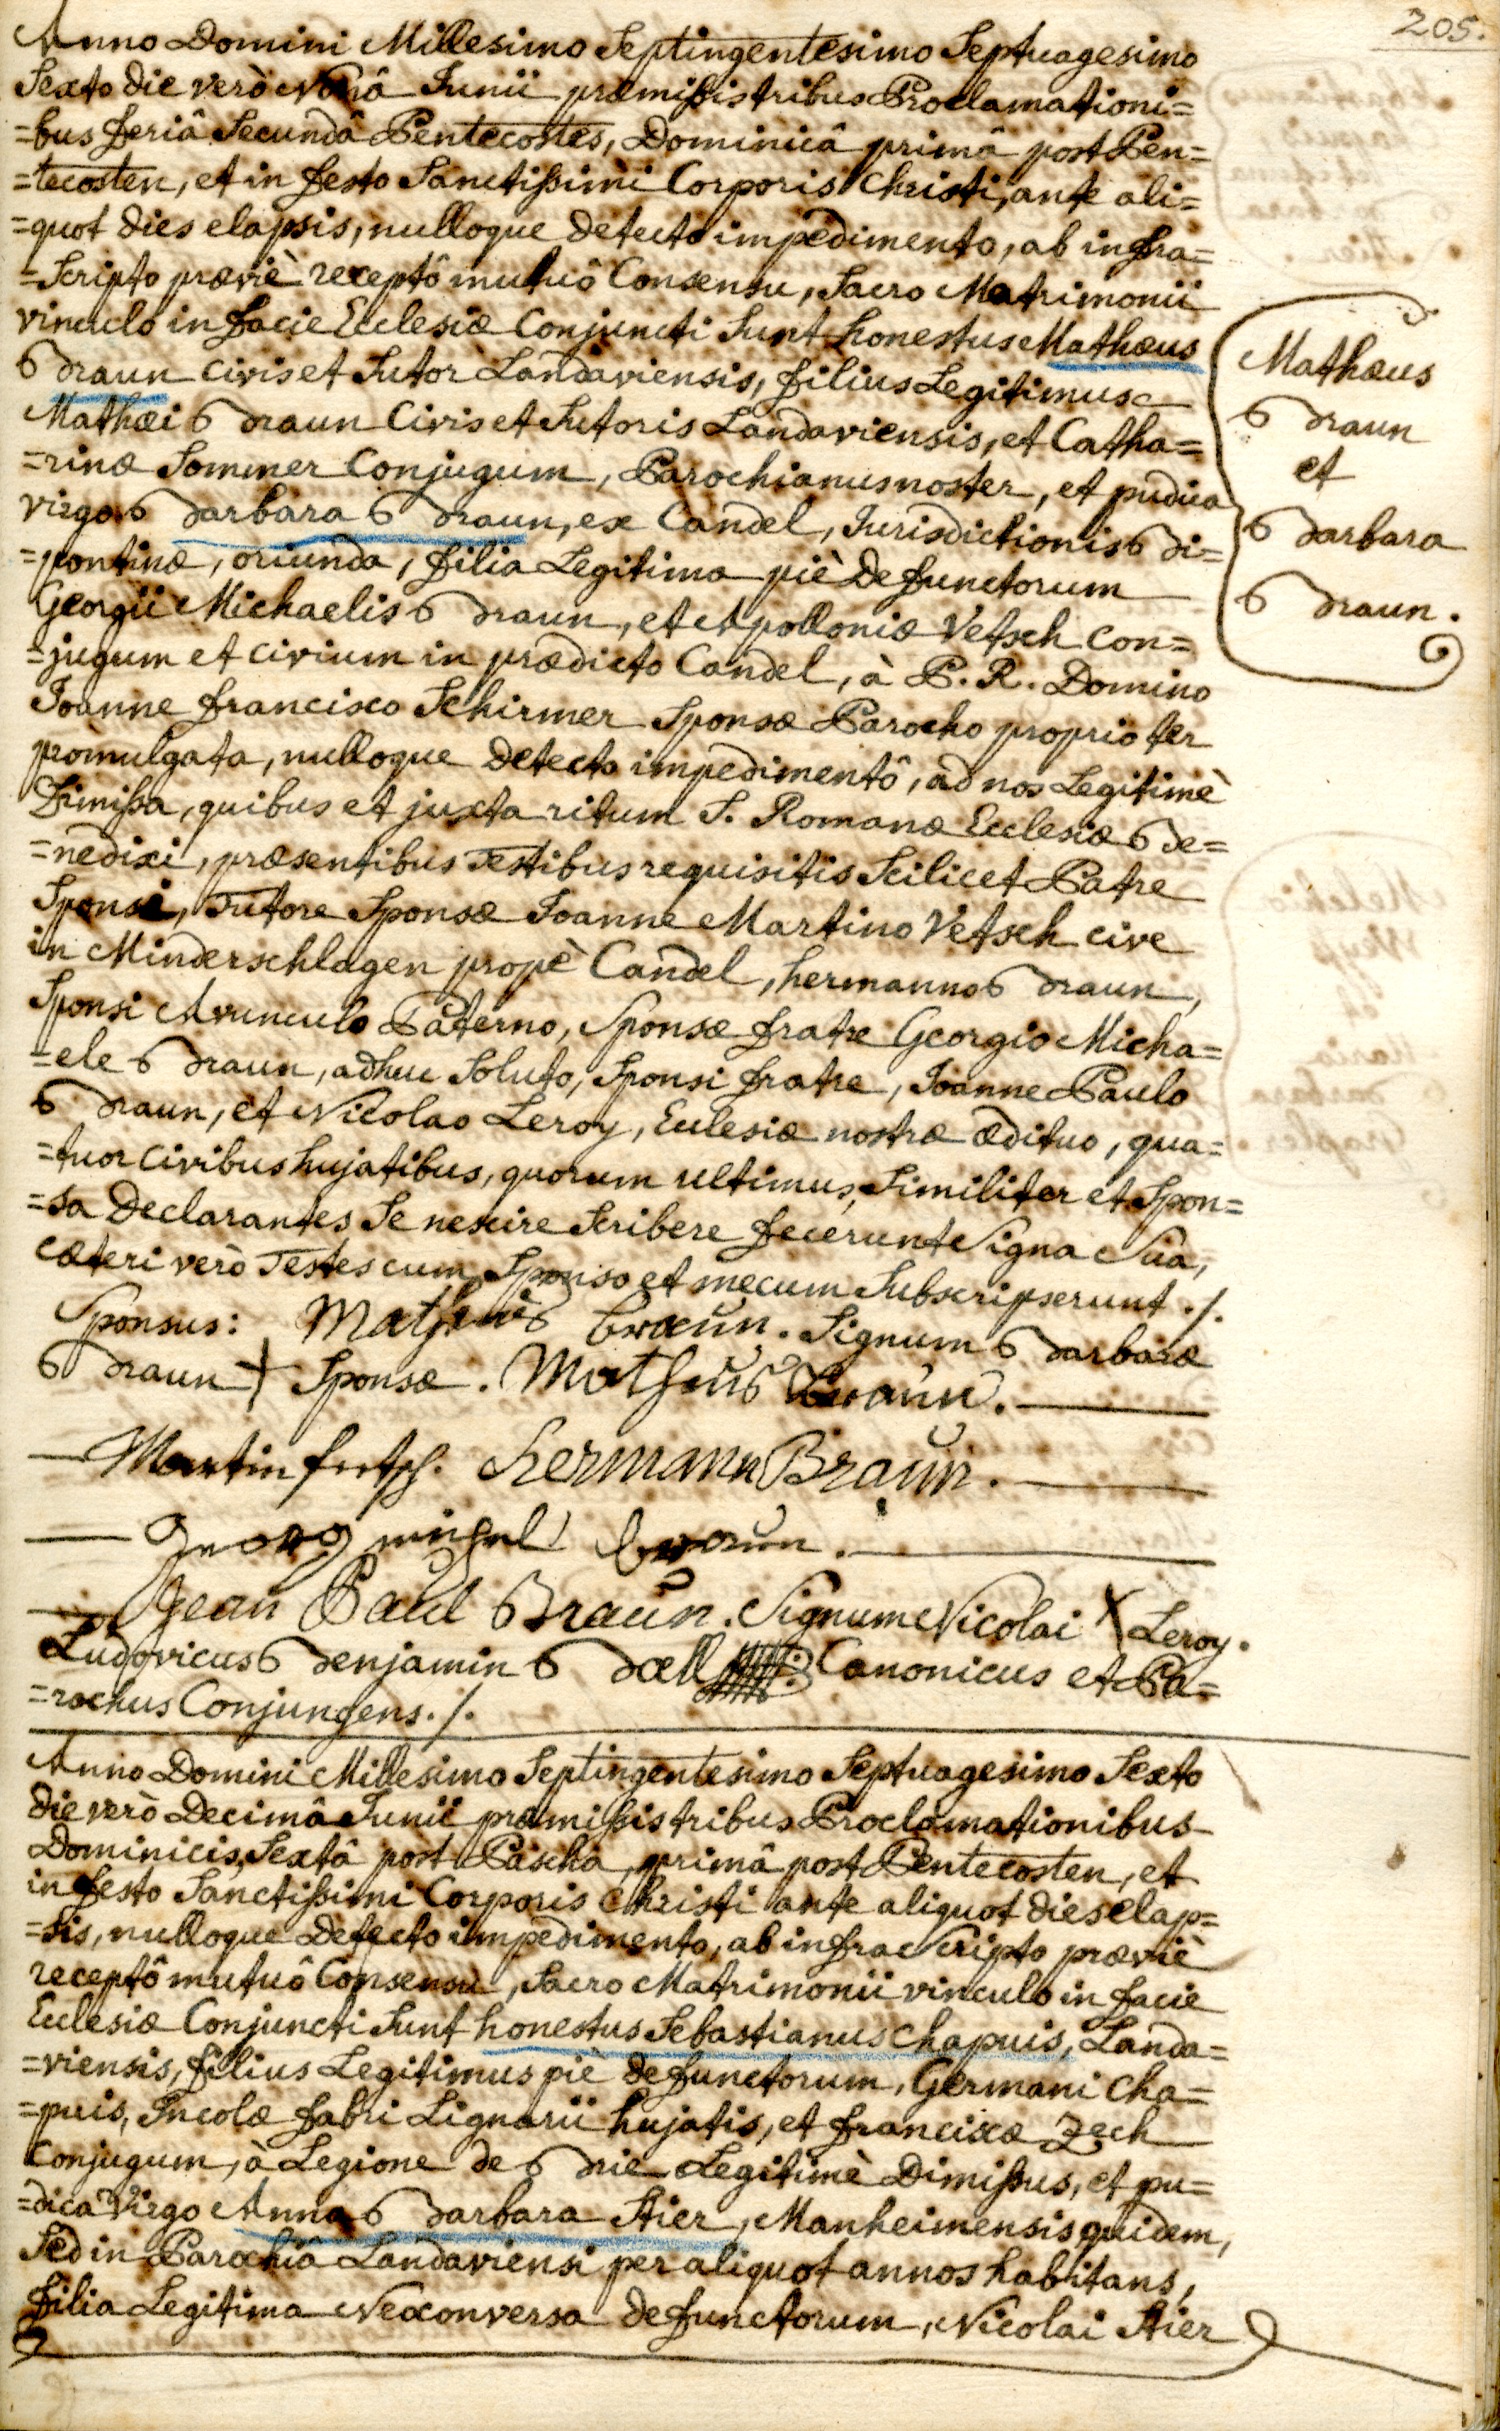 205.
Anno Domini Millesimo Septingentesimo Septuagesimo
Sexto die verò Nonâ Junii præmissis tribus Proclamationi=
=bus feriâ Secundâ Pentecostes, Dominicâ primâ post Pen=
=tecosten, et in festo Sanctissimi Corporis Christi, ante ali=
=quot dies elapsis, nulloque detecto impedimento, ab infra=
=Scripto præviè receptô mutuô Consensu, Sacro Matrimonii
vinculo in facie Ecclesiæ Conjuncti Sunt honestus Mathæus
Braun civis et Sutor Landaviensis, filius Legitimus
Mathæi Braun Civis et Sutoris Landaviensis, et Catha=
=rinæ Sommer Conjugum, Parochianus noster, et pudica
virgo Barbara Braun, ex Candel, Jurisdictionis Bi=
=pontinæ, oriunda, filia Legitima piè Defunctorum
Georgii Michaelis Braun, et Apolloniæ Vetsch con=
=jugum et civium in prædicto Candel, à P. R. Domino
Joanne francisco Schirmer Sponsæ Parocho proprio ter
promulgata, nulloque Detecto impedimentô, ad nos Legitimè
Dimissa, quibus et juxta ritum S. Romanæ Ecclesiæ Be=
=nedixi, præsentibus Testibus requisitis Scilicet Patre
Sponsi, Tutore Sponsæ Joanne Martino Vetsch cive
in Minderschlagen propè Candel, hermanno Braun,
Sponsi Avunculo Paterno, Sponsæ fratre Georgio Micha=
=ele Braun, adhuc Soluto, Sponsi fratre, Joanne Paulo
Braun, et Nicolao Leroy, Ecclesiæ nostræ ædituo, qua=
=tuor civibus hujatibus, quorum ultimus, Similiter et Spon=
=sa Declarantes Se nescire Scribere fecerunt Signa Sua,
cæteri verò Testes cum Sponso et mecum Subscripserunt ./.
Sponsus: Matheus braun. Signum Barbaræ
Braun + Sponsæ. Matheus Braun.
Martin fetsch. hermann Braun.
Georg michel braun.
Jean Paul Braun. Signum Nicolai X Leroy.
Ludovicus Benjamin Boell Canonicus et Pa=
=rochus Conjungens ./.
Mathæus
Braun
et
Barbara
Braun.
Anno Domini Millesimo Septingentesimo Septuagesimo Sexto
die verò Decimâ Junii præmissis tribus Proclamationibus
Dominicis, Sextâ post Pascha, primâ post Pentecosten, et
in festo Sanctissimi Corporis Christi ante aliquot dies elap=
=sis, nulloque Detecto impedimento, ab infra Scripto præviè
receptô mutuô Consensu, Sacro Matrimonii vinculo in facie
Ecclesiæ Conjuncti Sunt honestus Sebastianus Chapuis, Landa=
=viensis, filius Legitimus piè defunctorum, Germani Cha=
=puis, Incolæ fabri Lignarii hujatis, et franciscæ Zech
Conjugum, à Legione de Brie Legitimè Dimissus, et pu=
=dica Virgo Anna Barbara Stier, Manheimensis quidem,
Sed in Parochiâ Landaviensi per aliquot annos habitans,
filia Legitima Neoconversa defunctorum, Nicolai Stier